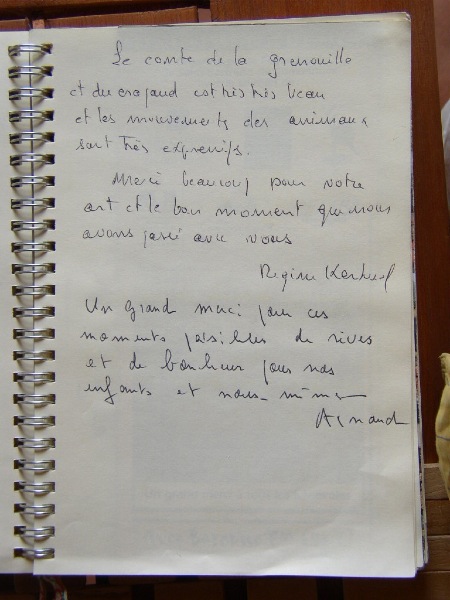 Le conte de la grenouille
et du crapaud est très très beau
et les mouvements des animaux
sont très expressifs.
Merci beaucoup pour votre
art et le bon moment que nous
avons passé avec vous
Régine
Un grand merci pour ces
moments paisibles de rêves
et de bonheur pour nos
enfants et nous-mêmes
Arnaud